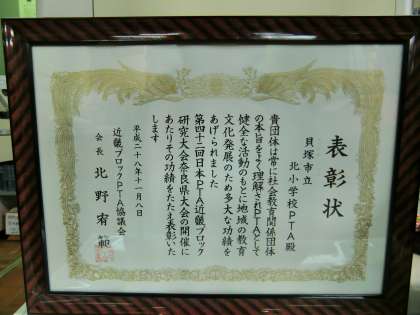 表彰状
貝塚市立
北小学校PTA殿
貴団体は常に社会教育関係団体
の本旨をよく理解されPTAとして
健全な活動のもとに地域の教育
文化発展のため多大な功績を
あげられました
第四十二回日本PTA近畿ブロック
研究大会奈良県大会の開催に
あたりその功績をたたえ表彰いた
します
平成二十八年十一月八日
近畿ブロックPTA協議会
会長 北野宥範